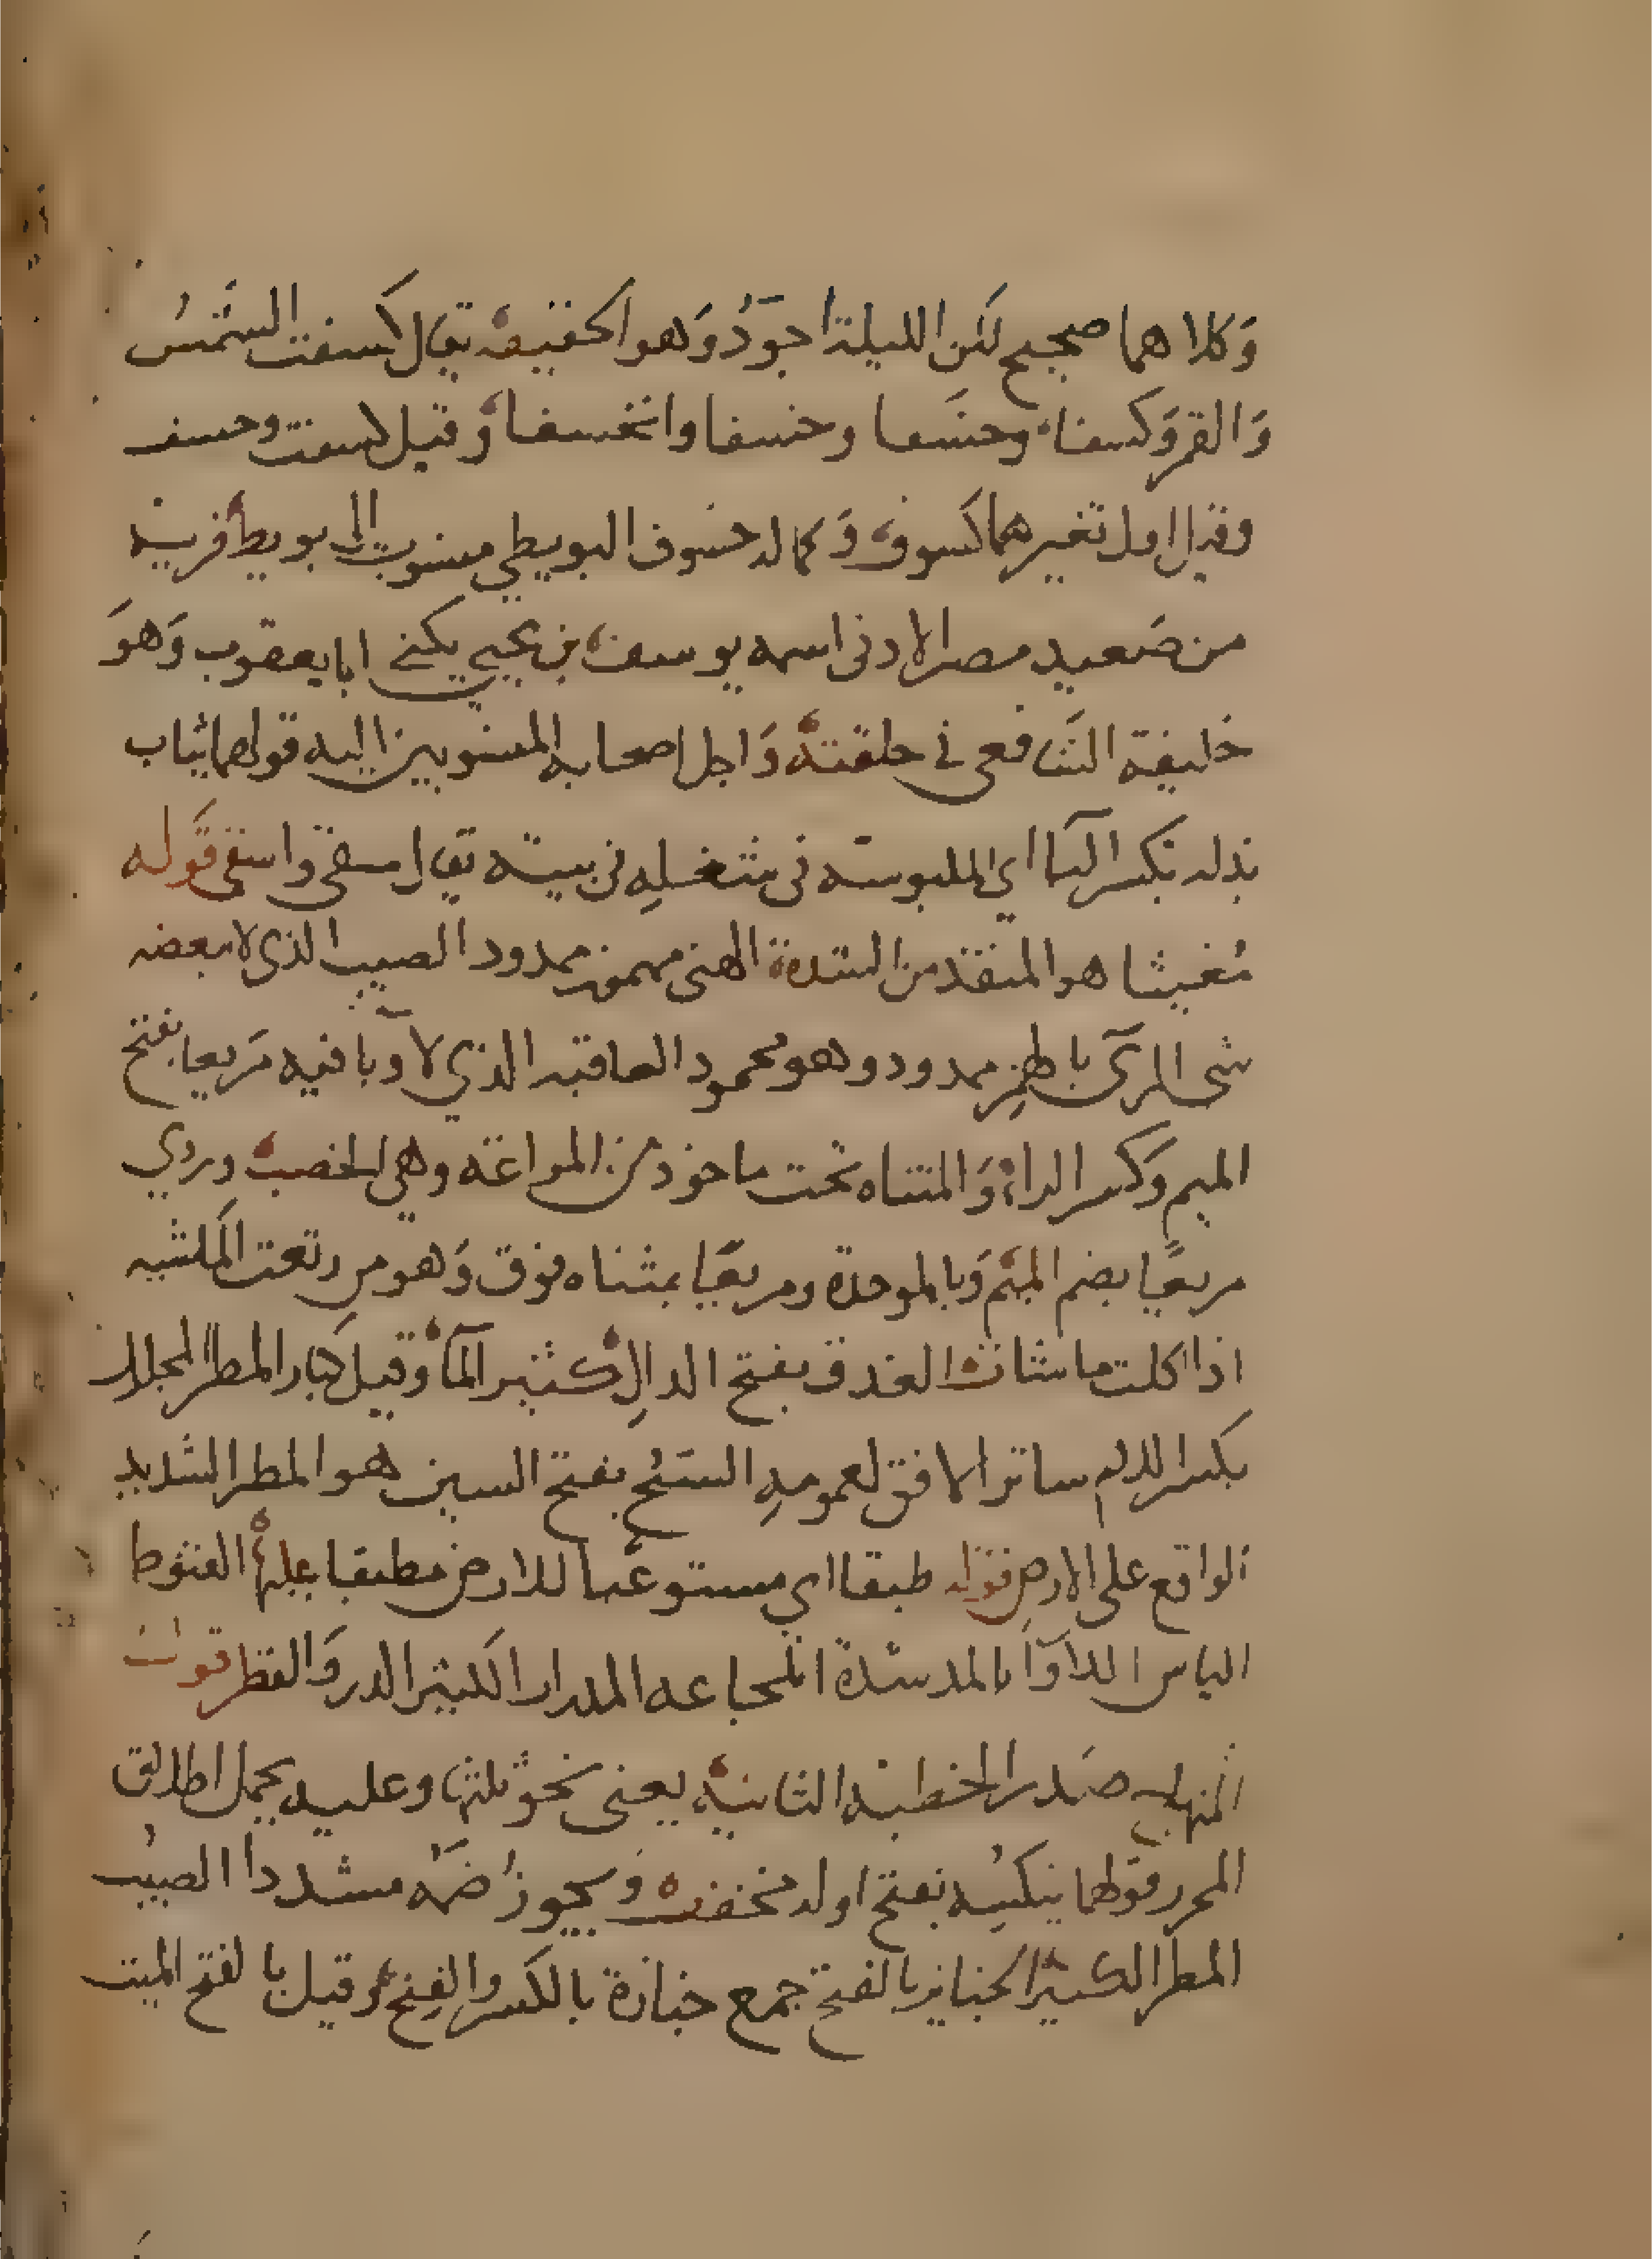 وَكلاهما صحيح لكن الليلة اجوَدُ وَهو الحقيقه يقال كسفت الشمسُ
وَالقمر وَكسفا وخسَفا وخسفا وانخسفا وقيل كسفت وخسف
وقيل اول تغيرهما كسوف وكماله خسوف البويطي منسوب الى بويط قرية
من صَعيد مصر الادنى اسمه يوسف بن يحيي يكنى ابا يعقوب وَهوَ
خليفة الشافعي في حلقته وَاجل اصحابه المنسوبين اليه قولهما ثياب
بذله بكسر البا اي الملبوسه في شغلِه في بيته يقال سقى واسقى قَوله
مُغيثا هو المنقذ من الشدة الهني مهموز ممدود الطيب الذي لا ينغصه
شى المرئ بالهمزِ ممدود وهو محمود العاقبه الذي لا وبا فيه مَريعا بفتح
الميم وَكسر الراء وَالمثناه تحت ماخوذ من المراعه وهي الخصب وروي
مربعًا بضم الميم وَبالموحدة ومرتعًا بمثناه فوق وَهو مِن رتعت الماشيه
اذا اكلت ما شات الغدق بفتح الدالِ كثير المآ وقيل كبار المطر المجلل
بكسر اللام ساتر الافق لعمومهِ السَحُّ بفتح السين هو المطر الشديد
الواقع على الارض قوله طبقا اي مستوعبا للارض مطبقا عليها القنوط
الياس اللآوآ بالمد شدة المجاعه المدرار الكثير الدر وَالقطر قول
المنهاج صَدر الخطبة الثانيه يعنى نحو ثلثها وعليه يحمل اطلاق
المحرر قولهما ينكسه بفتح اوله مخففا ويجوز ضمه مشددا الصيب
المطر الكثير الجنايز بالفتح جمع جنازة بالكسر والفتح وقيل بالفتح الميت